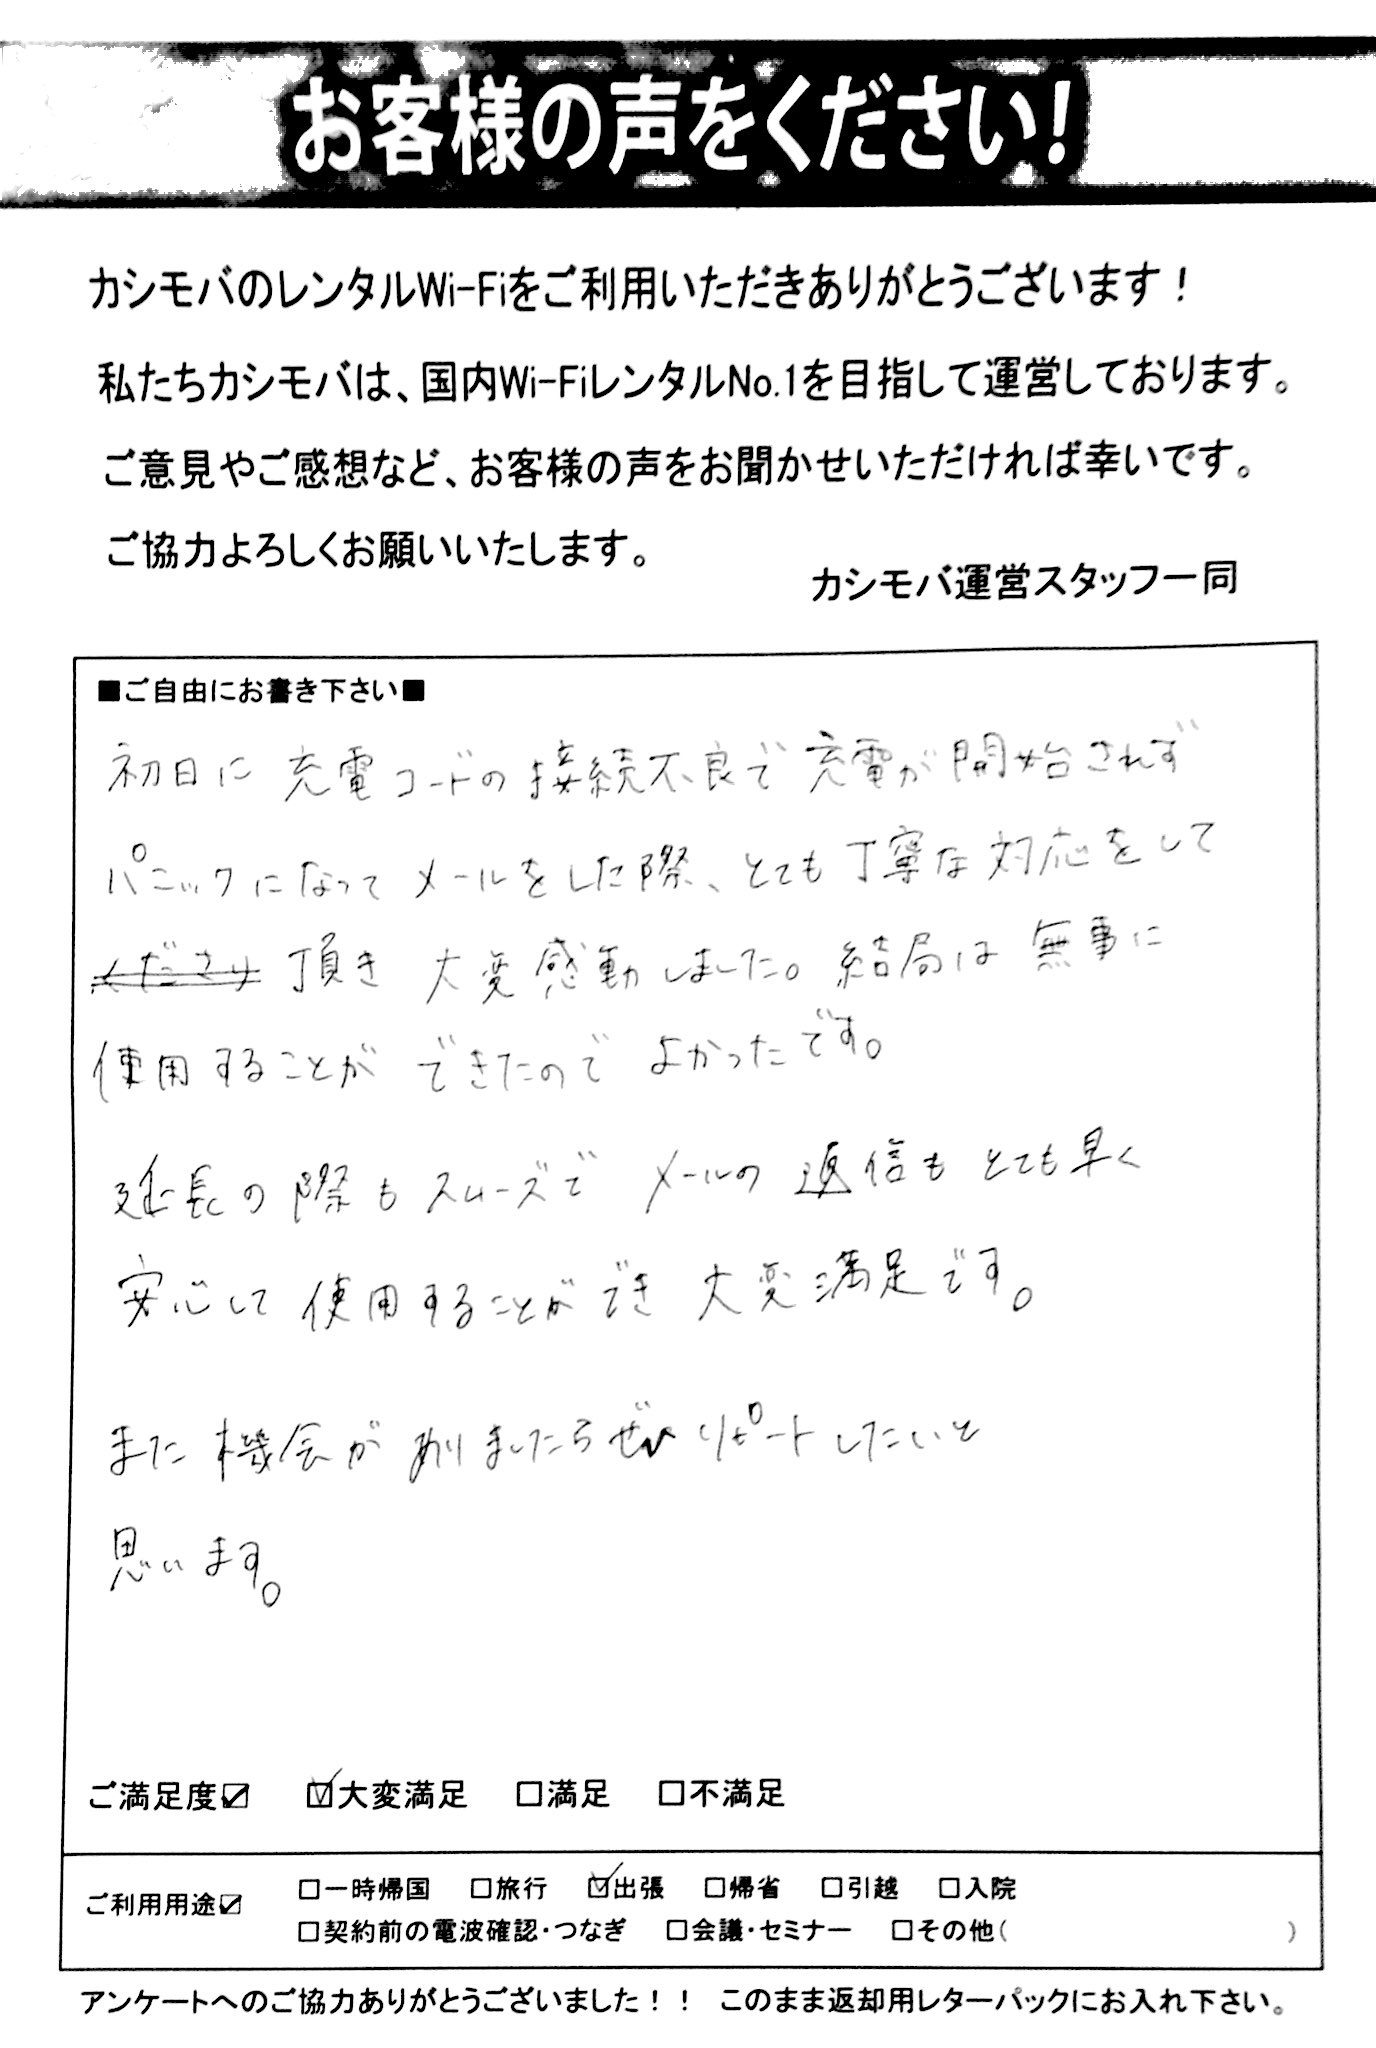 お客様の声をください!
カシモバのレンタルWi-Fiをご利用いただきありがとうございます！
私たちカシモバは、国内Wi-FiレンタルNo.1を目指して運営しております。
ご意見やご感想など、お客様の声をお聞かせいただければ幸いです。
ご協力よろしくお願いいたします。
カシモバ運営スタッフ一同
■ご自由にお書き下さい■
初日に 充電コードの接続不良で充電が開始されず
パニックになって メールをした際、とても丁寧な対応をして
くださり 頂き 大変感動しました。結局は 無事に
使用することが できたので よかったです。
延長の際も スムーズで メールの 返信も とても早く
安心して 使用することができ 大変満足です。
また機会が ありましたらぜひ リピートしたいと
思います。
ご満足度☑ ☑大変満足 □満足 □不満足
ご利用用途☑ □一時帰国 □旅行 ☑出張 □帰省 □引越 □入院
□契約前の電波確認・つなぎ □会議・セミナー □その他( )
アンケートへのご協力ありがとうございました！！ このまま返却用レターパックにお入れ下さい。